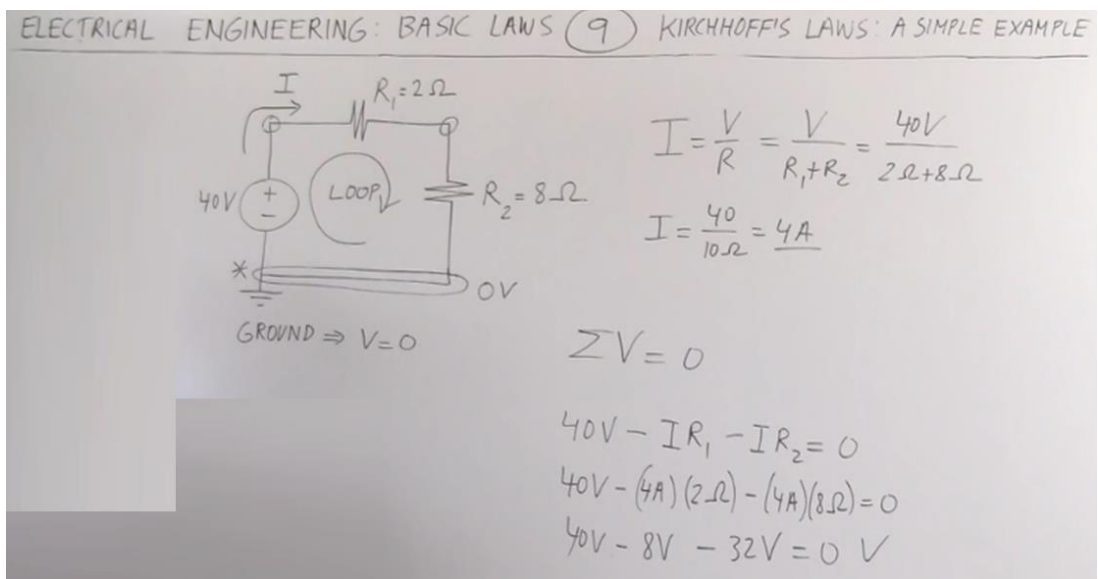 ELECTRICAL ENGINEERING: BASIC LAWS 9 KIRCHHOFF'S LAWS: A SIMPLE EXAMPLE
I
R₁=2Ω
40V
+
-
LOOP
R₂=8Ω
*
0V
GROUND ⇒ V=0
I = V/R = V/(R₁+R₂) = 40V/(2Ω+8Ω)
I = 40/10Ω = 4A
ΣV = 0
40V - IR₁ - IR₂ = 0
40V - (4A)(2Ω) - (4A)(8Ω) = 0
40V - 8V - 32V = 0 V